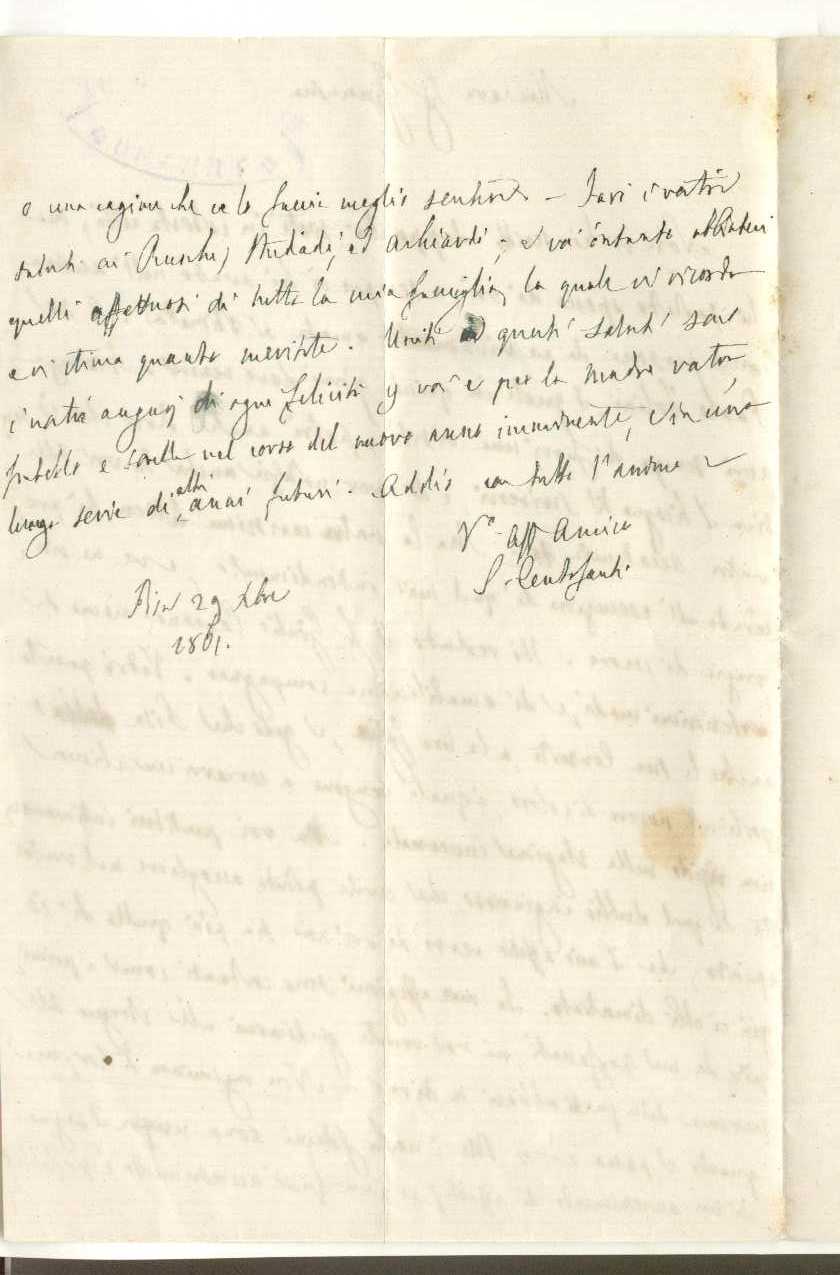 o una cagione che ce lo faccia meglio sentire – Farò i vostri
saluti ai Ruschi, Studiati, ed Archiardi; e voi intanto abbiatevi
quelli affettuosi di tutta la mia famiglia, la quale vi ricorda
e vi stima quanto meritate. Uniti a questi saluti sono
i nostri augurj di ogni felicità p voi e per la Madre vostra
fratello e sorelle nel corso del nuovo anno imminente, e in una
lunga serie di altri anni futuri. Addio con tutto l'animo
Vo Aff Amico
S. Centofanti
Pisa 29 Xbre
1861.